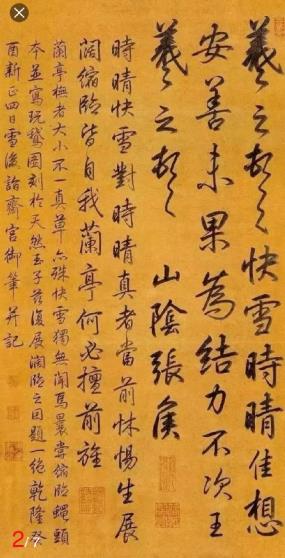 羲之頓首快雪時晴佳想
安善未果為結力不次王
羲之頓首 山陰張侯
時晴快雪對時晴真者當前怵惕生展
闊縮臨皆自我蘭亭何必擅前旌
蘭亭橅者大小不一真草亦殊快雪獨無聞焉曩嘗縮臨蠅頭
本並寫玩鵞圖刻於天然玉子茲復展闊臨之因題一絕乾隆癸
酉新正四日雪後詣齋宮御筆并記
2/7